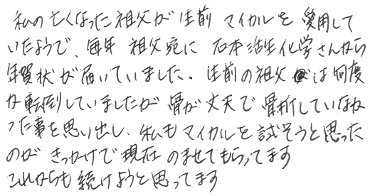 私の亡くなった祖父が生前 マイカルを愛用して
いたようで、毎年 祖父宛に 石本活生化学さんから
年賀状が届いていました。生前の祖父は何度
か転倒していましたが骨が丈夫で骨折していなか
った事を思い出し、私もマイカルを試そうと思った
のが きっかけで現在 のませてもらってます
これからも続けようと思ってます